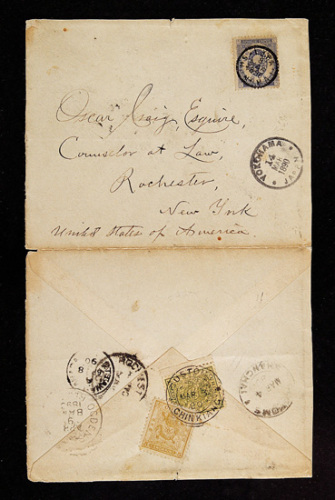 Oscar Craig, Esquire,
Counselor at Law,
Rochester,
New York
United States of America.
YOKOHAMA
14
1890
CHINKIANG
SHANGHAI
MAY
4
OGDEN